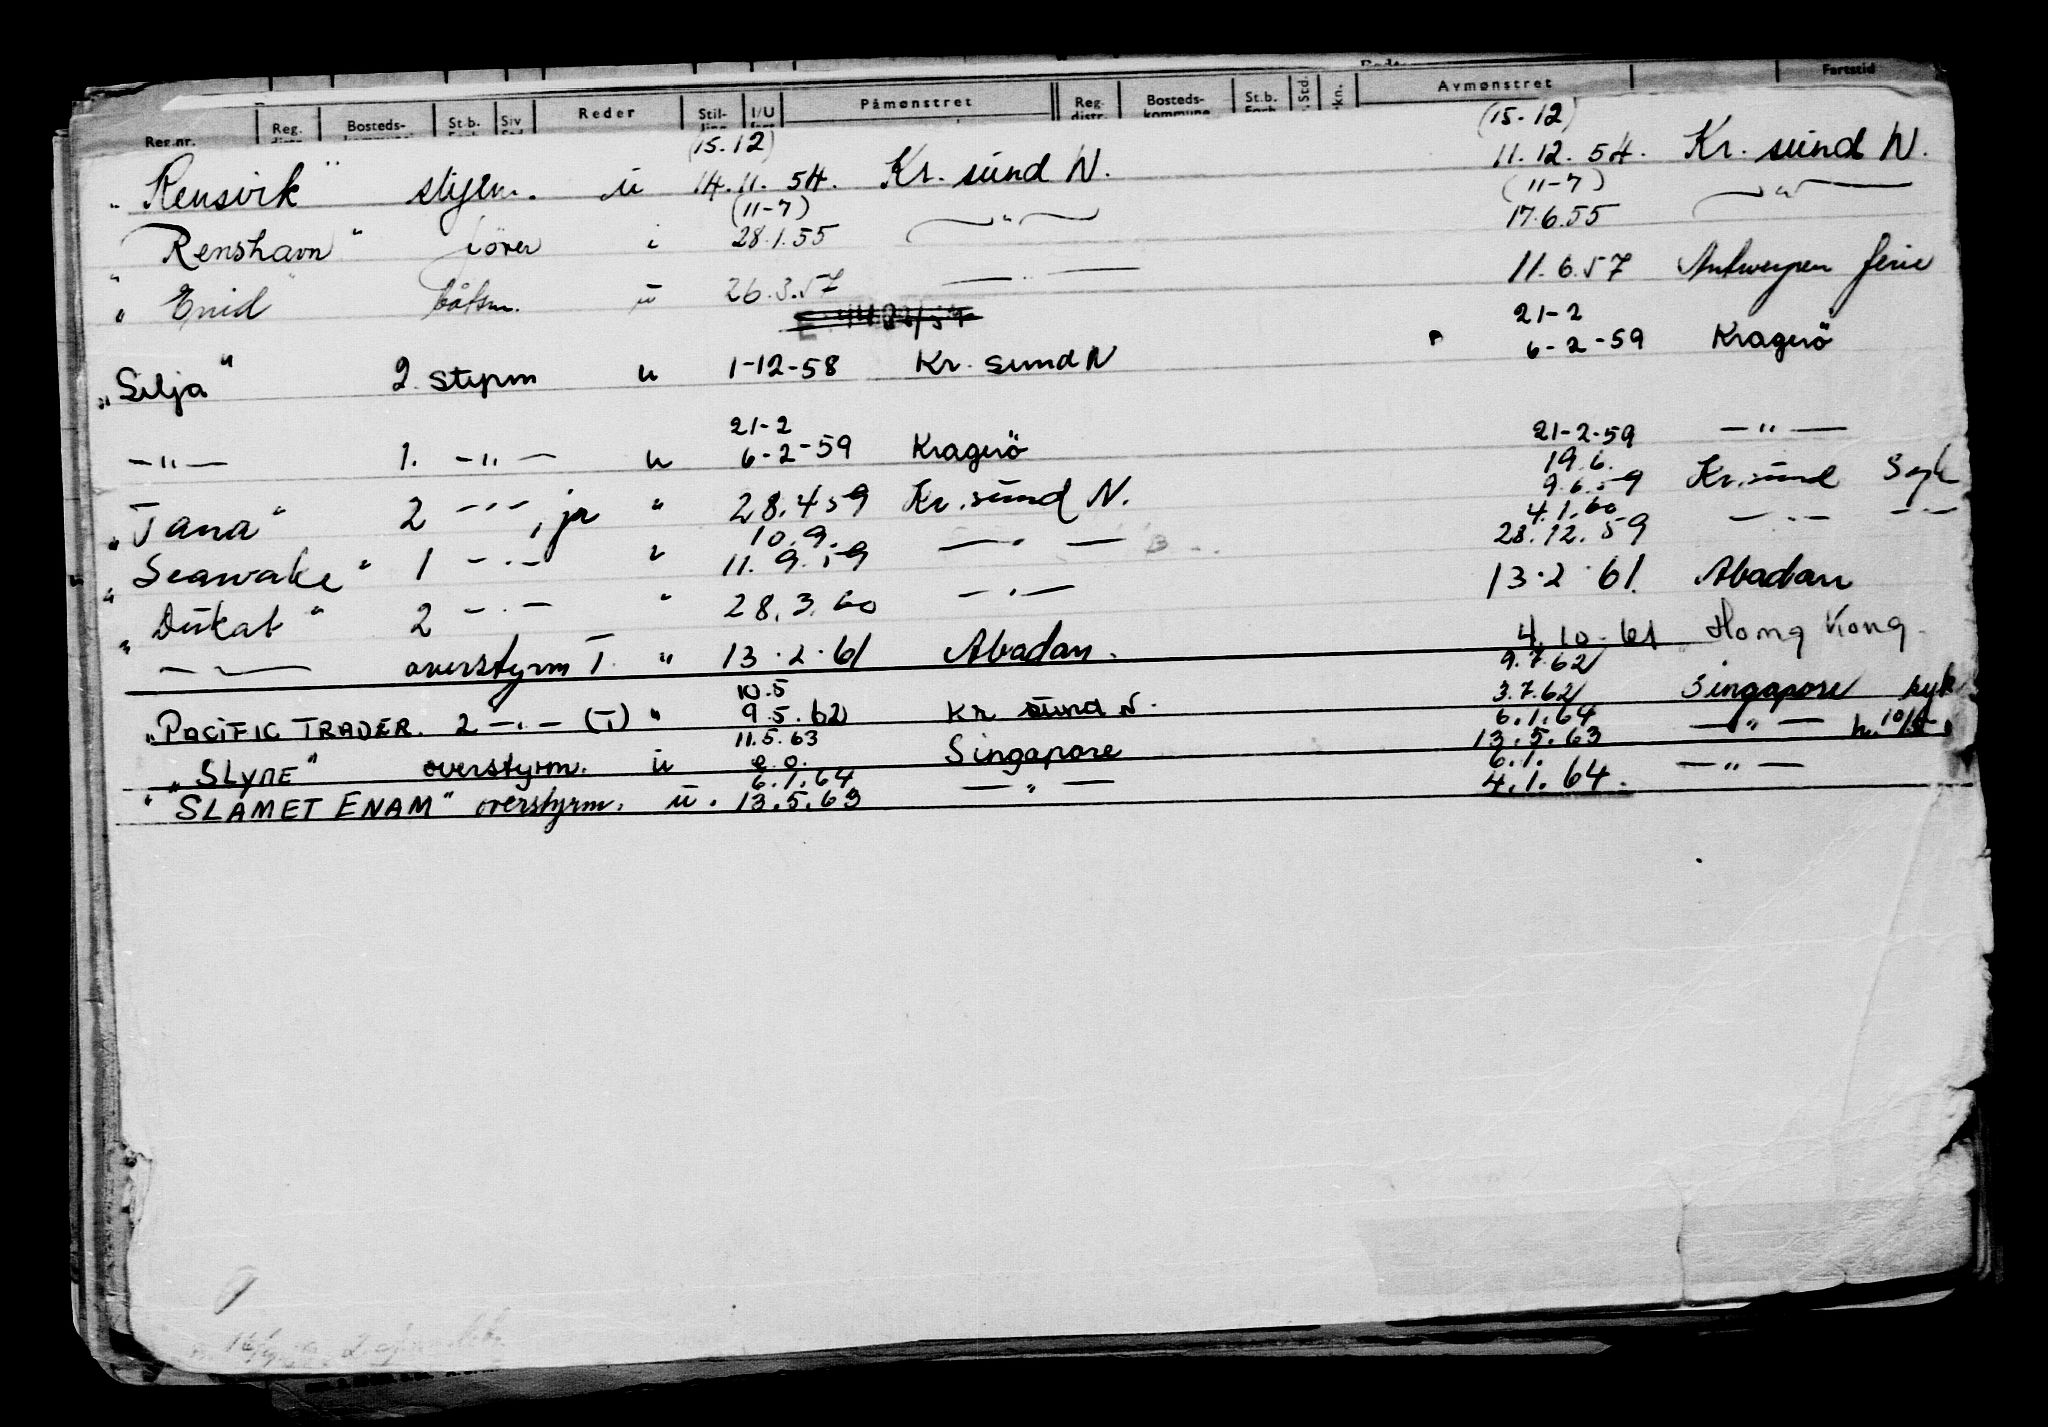 Fartstid
Reg.nr. Reg. Bosteds- St.b. Siv Reder Stil- I/U Påmønstret Reg. Bosteds- St.b. Std. kn. Avmønstret
(15.12) (15-12)
„Rensvik" styrm. u 14.11.54. Kr. sund N. 11.12.54. Kr. sund N.
(11-7) (11-7)
„Renshavn" fører i 28.1.55 — " — 17.6.55 — " —
„Enid" båtsm. u 26.3.57 — " — 11.6.57 Antwerpen ferie
21-2
„Silja" 2. styrm u 1-12-58 Kr. sund N 6-2-59 Kragerö
21-2
— " — 1. — " — u 6-2-59 Kragerö 21-2-59 — " —
19.6.
„Tana" 2 — " —, jr " 28.4.59 Kr. sund N. 9.6.59 Kr. sund Syk
10.9. 4.1.60
„Seawake" 1 — " — " 11.9.59 — " — 28.12.59 — " — — " —
„Dukat" 2 — " — " 28.3.60 — " — 13.2.61. Abadan
— " — overstyrm T. " 13.2.61 Abadan. 4.10.61 Hong Kong.
10.5 9.7.62
„PACIFIC TRADER. 2 — " — (T) " 9.5.62 Kr sund N. 3.7.62 Singapore syk
11.5.63 6.1.64
„SLYNE" overstyrm. u Singapore 13.5.63 — " —
6.1.64 6.1.
„SLAMET ENAM" overstyrm. u. 13.5.63 — " — 4.1.64. — " —